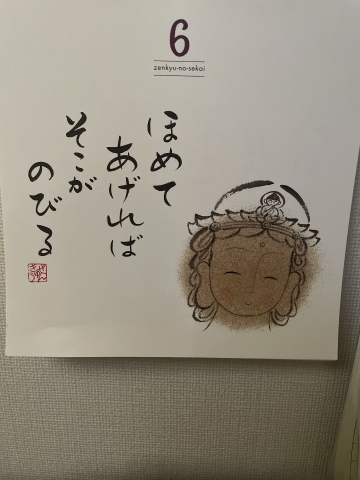 6
zenkyu-no-sekai
ほめて
あげれば
そこが
のびる